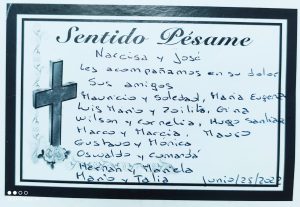 Sentido Pésame
Narcisa y José
Les acompañamos en su dolor
Sus amigos
Mauricio y Soledad, María Eugenia
Luis Mario y Zoilita, Gina
Wilson y Cornelia, Hugo Santiago
Marco y Marcia, Mauro
Gustavo y Mónica
Oswaldo y
Hernán y Mariela
Mario y Talia Junio/25/2022